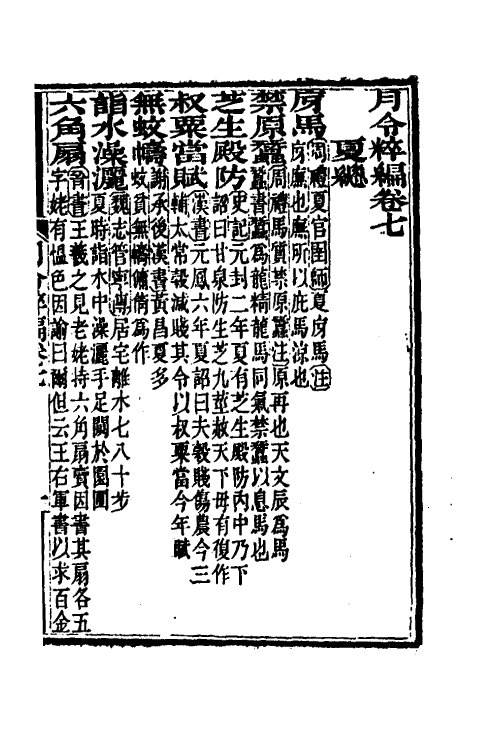 月令粹編卷七
夏總
庌馬周禮夏官圉師夏庌馬注
庌廡也廡所以庇馬涼也
禁原蠶周禮馬質禁原蠶注原再也天文辰爲馬
蠶書蠶爲龍精龍馬同氣禁蠶以息馬也
芝生殿防史記元封二年夏有芝生殿防內中乃下
詔曰甘泉防生芝九莖赦天下毋有復作
叔粟當賦漢書元鳳六年夏詔曰夫穀賤傷農今三
輔太常穀減賤其令以叔粟當今年賦
無蚊幬謝承後漢書黃昌夏多
蚊貧無幬傭債爲作
詣水澡灑魏志管寧傳居宅離水七八十步
夏時詣水中澡灑手足闚於園圃
六角扇晉書王羲之見老姥持六角扇賣因書其扇各五
字姥有慍色因諭曰爾但云王右軍書以求百金
月令粹編卷七
一